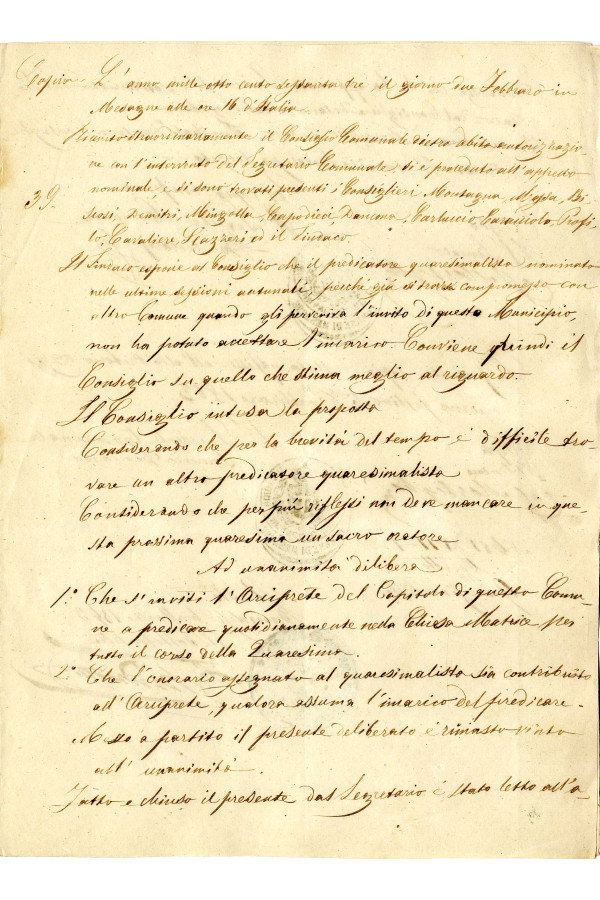 Copia - L'anno mille otto cento settanta tre il giorno due Febbraro in
Mesagne alle ore 16 d'Italia
Riunito straordinariamente il Consiglio Comunale dietro debita autorizzazio-
ne con l'intervento del Segretario Comunale, si è proceduto all'appello
39. nominale e si sono trovati presenti i Consiglieri Montagna, Massa, Bi-
scosi, Demitri, Minzolla, Capodieci, Dancona, Carluccio, Caracciola, Profi-
lo, Cavaliere, Scazzeri ed il Sindaco
Il Sindaco espone al Consiglio che il predicatore quaresimalista nominato
nelle ultime sessioni autunali, perchè già si trovava compromesso con
altro Comune quando gli perveniva l'invito di questo Municipio,
non ha potuto accettare l'incarico. Conviene quindi il
Consiglio su quello che stima meglio al riguardo.
Il Consiglio intesa la proposta
Considerando che per la brevità del tempo è difficile tro-
vare un altro predicatore quaresimalista
Considerando che per più riflessi non deve mancare in que-
sta prossima quaresima un sacro oratore
Ad unanimità delibera
1.° Che s'inviti l'Arciprete del Capitolo di questo Comu-
ne a predicare quotidianamente nella Chiesa Matrice per
tutto il corso della Quaresima.
2.° Che l'onorario assegnato al quaresimalista sia contribuito
all'Arciprete, qualora assuma l'incarico del predicare.
Messo a partito il presente deliberato è rimasto vinto
all'unanimità.
Fatto e chiuso il presente dal Segretario è stato letto all'a-